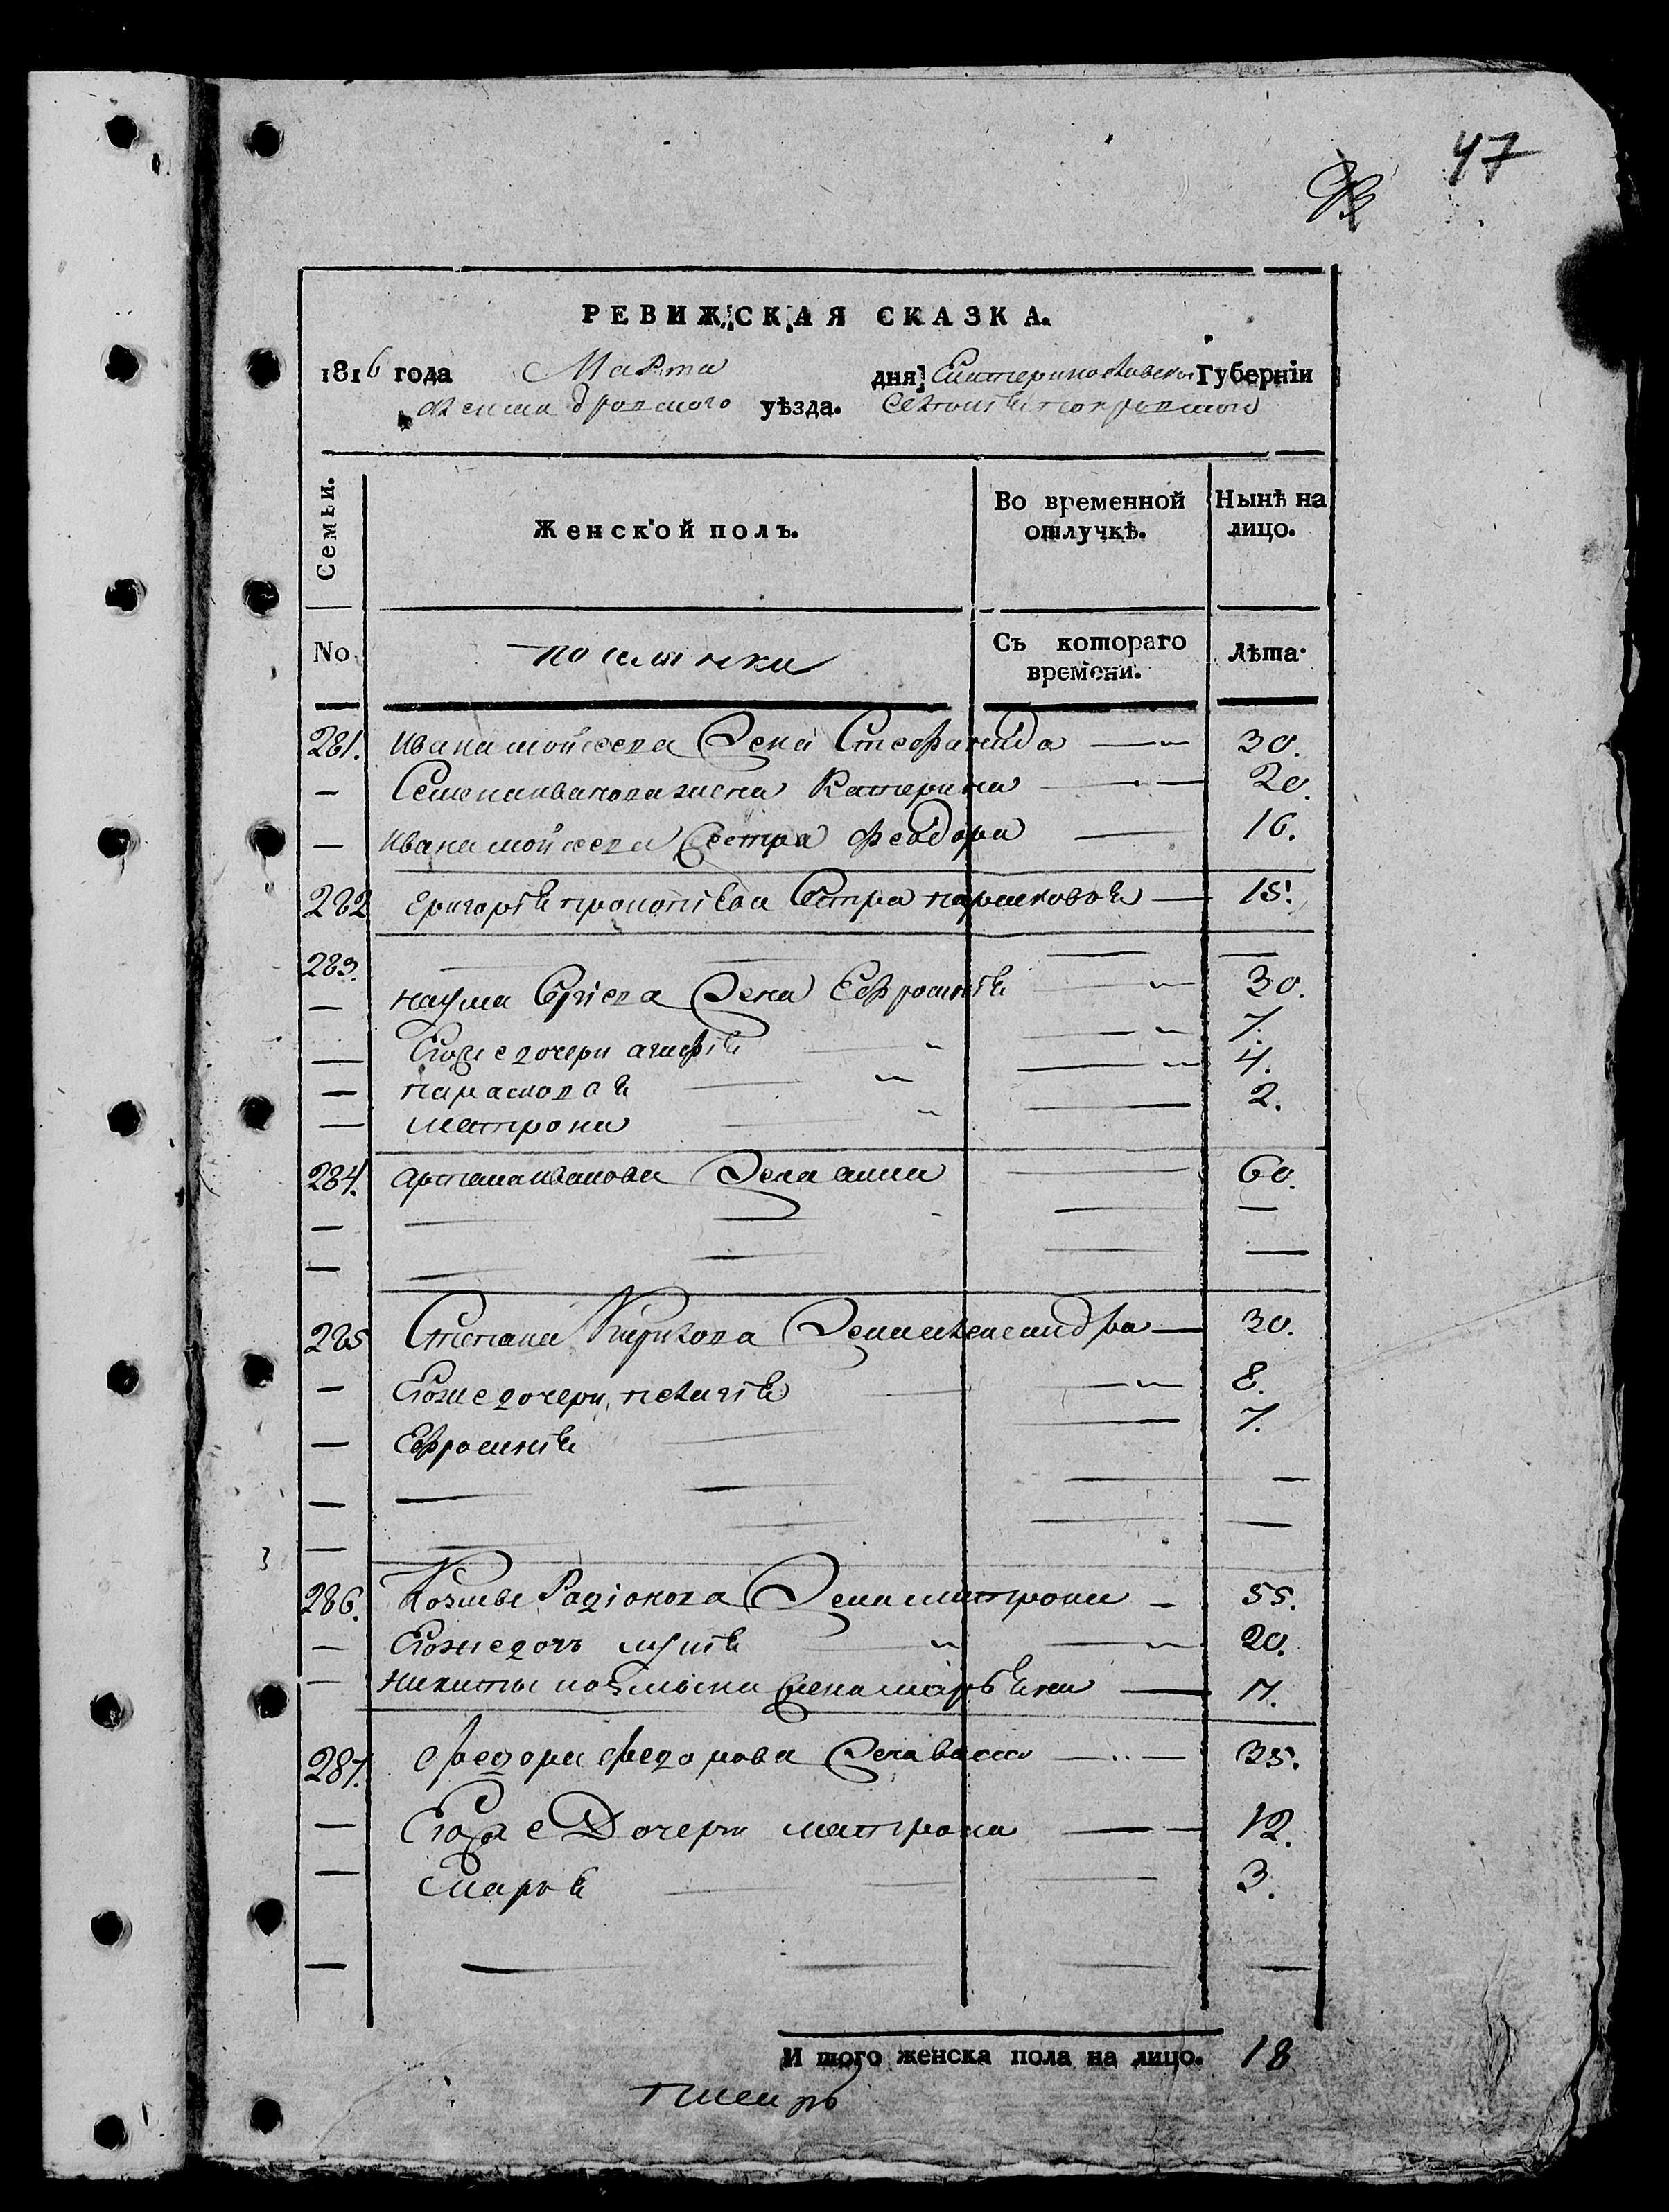 47
РЕВИЖСКАЯ СКАЗКА.
1816 года Марта дня Екатеринославской Губерніи
Александровского уѣзда. Села
Семьи. Женской полъ. Во временной отлучкѣ. Нынѣ на лицо.
No поселянки Съ котораго времени. Лѣта.
281. Ивана мойсеева Жена Стефанида — 30.
— Семена иванова жена Катерина — 20.
— Ивана мойсеева Сестра Феодора — 16.
282 Григорія прокопіева Сестра парасковія — 15.
283. — — —
— наума Сергіева Жена Ефросинія — 30.
— Егоже дочери агафія — 7.
— парасковія — 4.
— матрона — 2.
284. артема иванова Жена анна — 60.
— — — —
— — — —
285 Степана Кирилова Жена александра — 30.
— Егоже дочери, пелагія — 8.
— Ефросинія — 7.
— — — —
— — — —
3
286. Козмы Радіонова Жена матрона — 55.
— Егоже дочь — 20.
— Никиты козмына жена марѣяна — 17.
287. Федора федорова Жена васса — 35.
— Егоже Дочери матрона — 12.
— Марія — 3.
— — — —
И того женска пола на лицо. 18